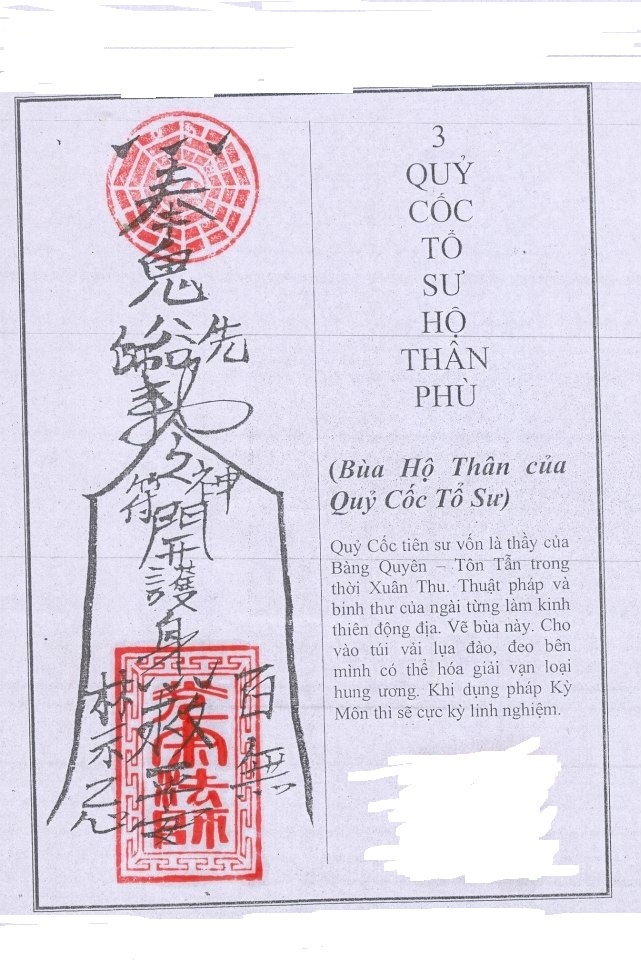 奉
鬼
谷先師
勅令
之
神符
開
護
身
百無禁忌
3
QUỶ
CỐC
TỔ
SƯ
HỘ
THÂN
PHÙ
(Bùa Hộ Thân của
Quỷ Cốc Tổ Sư)
Quỷ Cốc tiên sư vốn là thầy của
Bàng Quyên – Tôn Tẫn trong
thời Xuân Thu. Thuật pháp và
binh thư của ngài từng làm kinh
thiên động địa. Vẽ bùa này. Cho
vào túi vải lụa đào, đeo bên
mình có thể hóa giải vạn loại
hung ương. Khi dụng pháp Kỳ
Môn thì sẽ cực kỳ linh nghiệm.